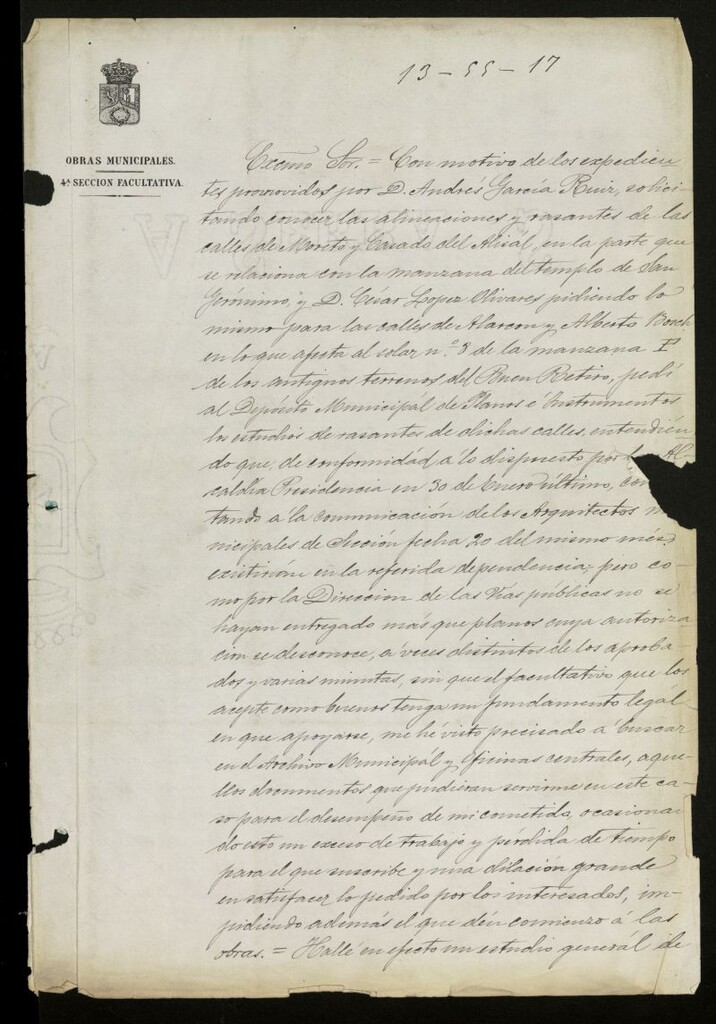 13-55-17
OBRAS MUNICIPALES.
4ª SECCION FACULTATIVA.
Excmo Sor. = Con motivo de los expedien
tes promovidos por D. Andrés García Ruiz, solici-
tando conocer las alineaciones y rasantes de las
calles de Moreto y Casado del Alisal, en la parte que
se relaciona con la manzana del templo de San
Gerónimo, y D. César Lopez Olivares pidiendo lo
mismo para las calles de Alarcon y Alberto Bosch
en lo que afecta al solar n.º 8 de la manzana F
de los antiguos terrenos del Buen Retiro, pedí
al Depósito Municipal de Planos é Instrumentos
los estudios de rasantes de dichas calles, entendien-
do que, de conformidad a lo dispuesto por la Al-
caldia Presidencia en 30 de Enero último, con
tando á la comunicación de los Arquitectos m
nicipales de Sección fecha 20 del mismo més
existirían en la referida dependencia; pero co-
mo por la Direccion de las Vias públicas no se
hayan entregado más que planos cuya autoriza-
cion se desconoce, a veces distintos de los aproba-
dos y varias minutas, sin que el facultativo que los
acepte como buenos tenga un fundamento legal
en que apoyarse, me hé visto precisado á buscar
en el Archivo Municipal y oficinas centrales, aque-
llos documentos que pudieran servirme en este ca-
so para el desempeño de mi cometido, ocasionan
do esto un exceso de trabajo y pérdida de tiempo
para el que suscribe y una dilación grande
en satisfacer lo pedido por los interesados, im-
pidiendo además el que den comienzo á las
obras. = Hallé en efecto un estudio generál de